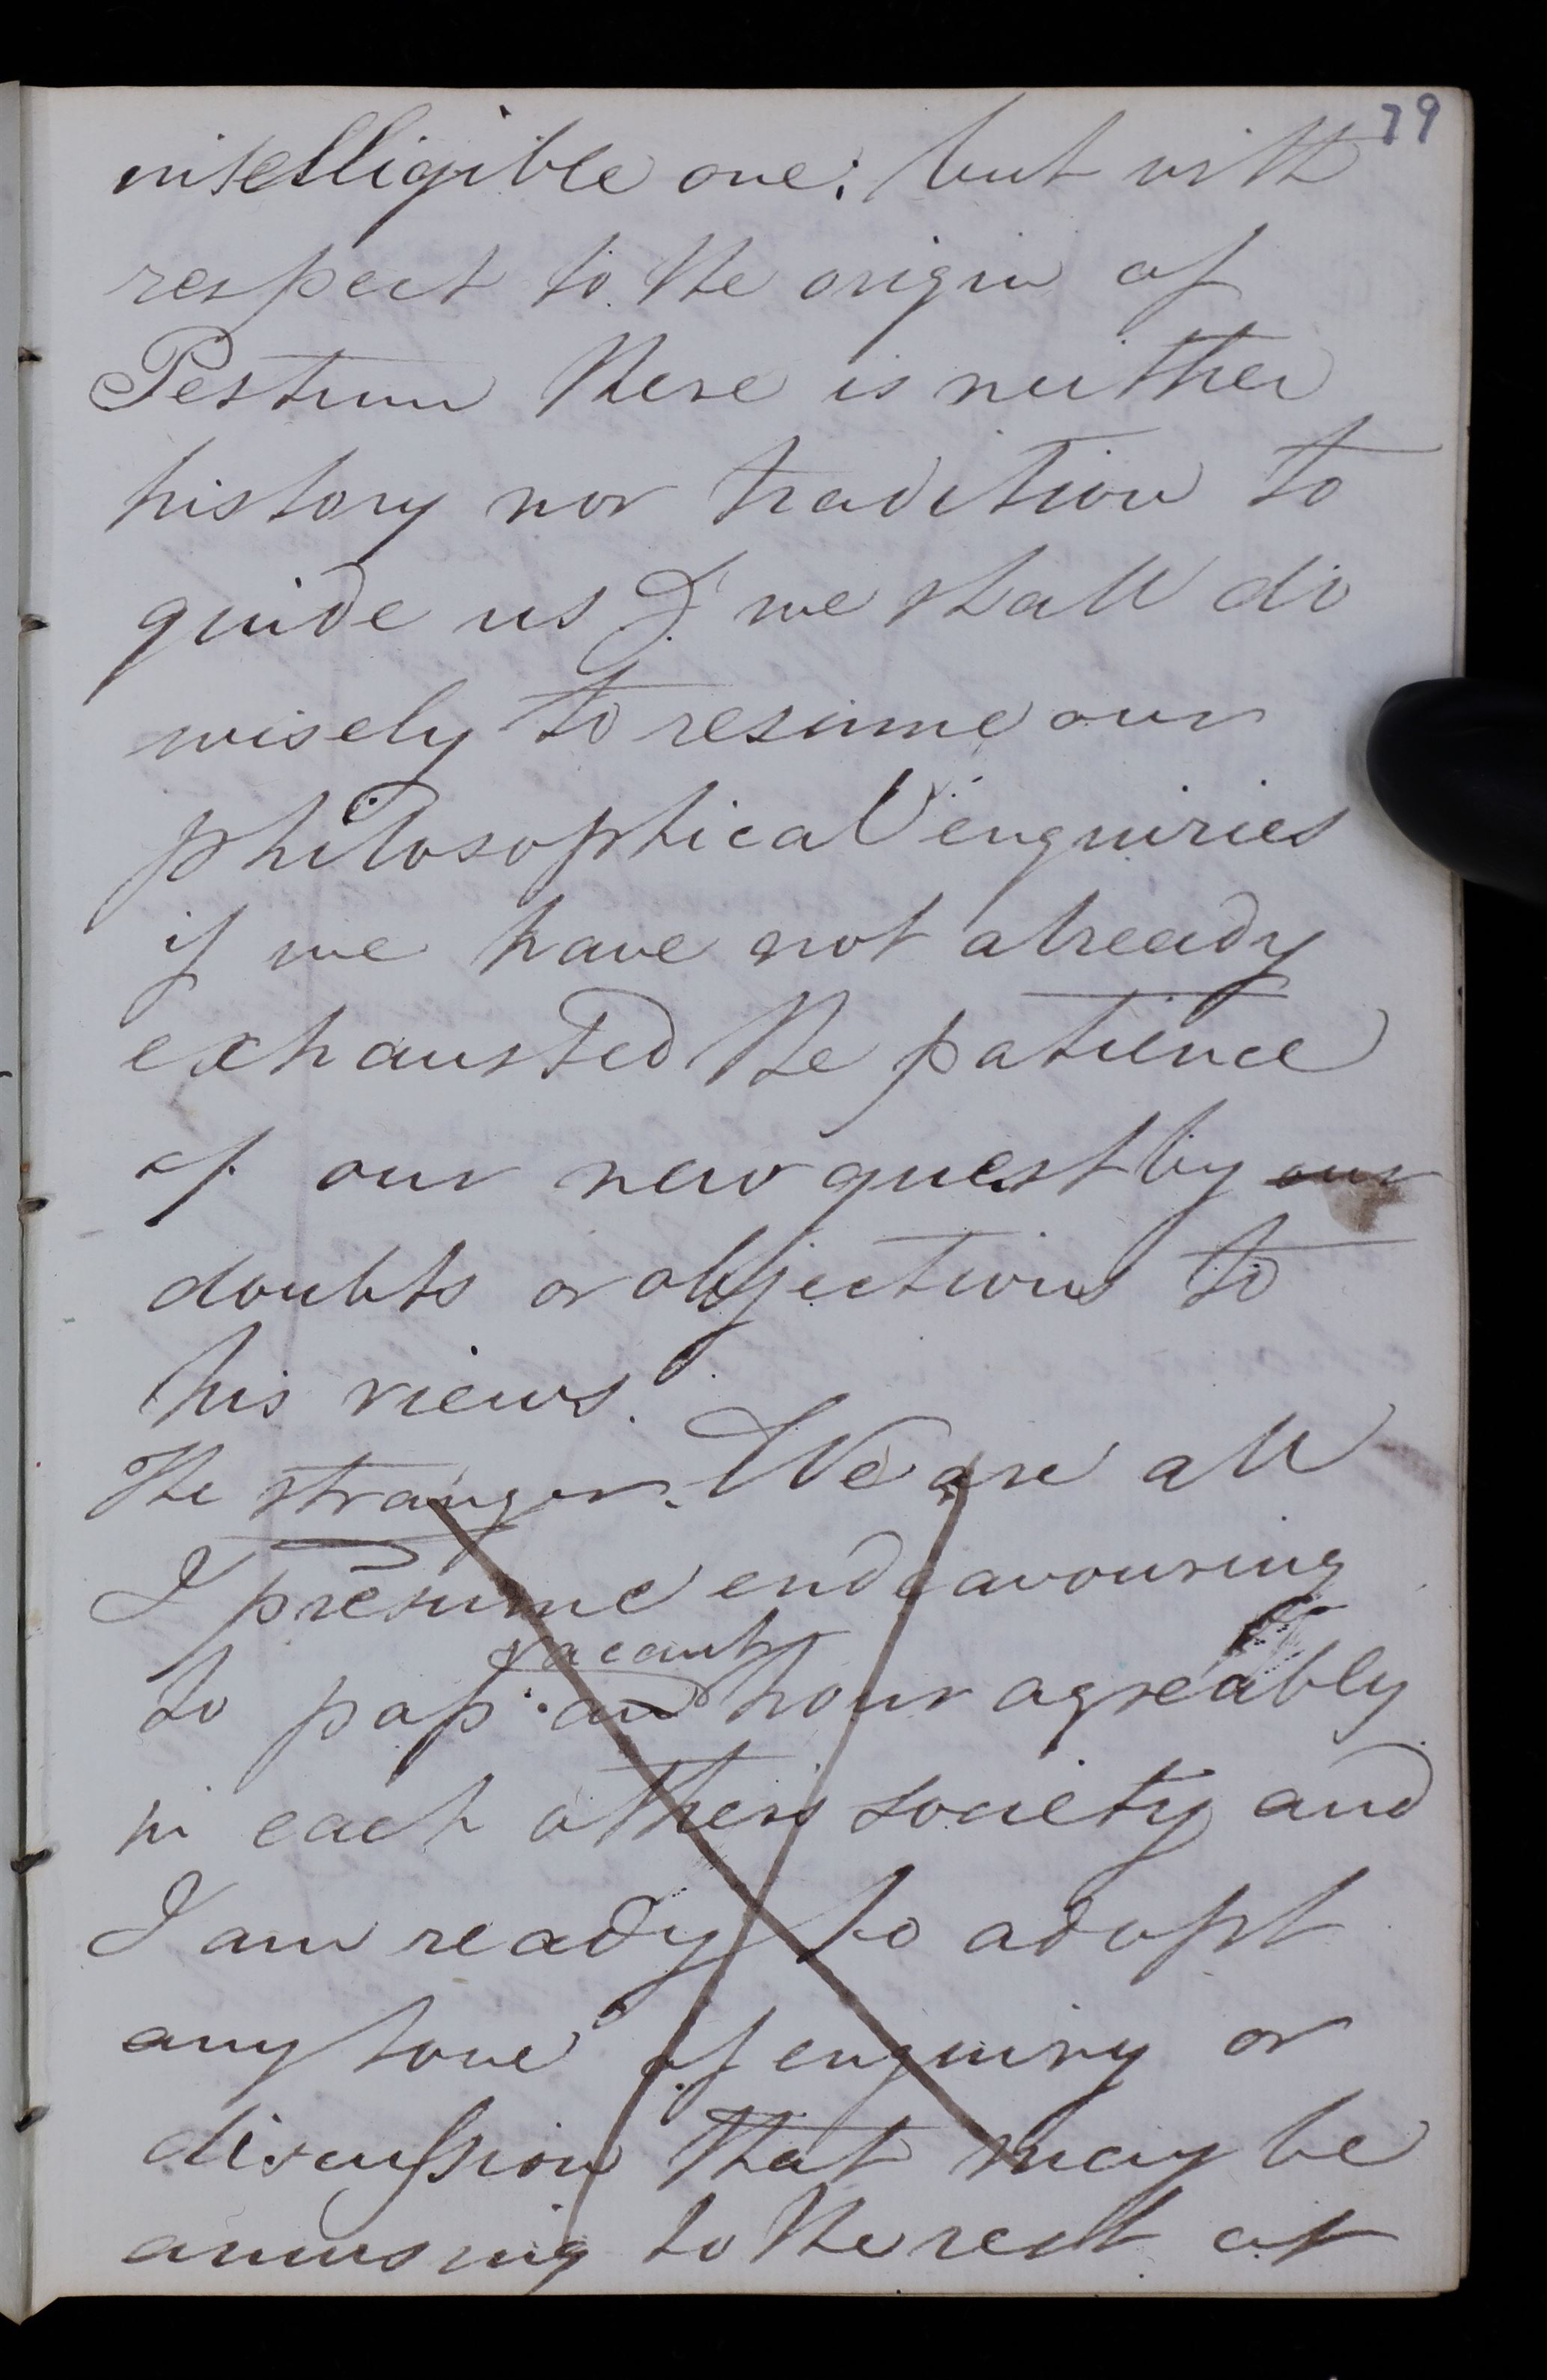 79
intelligible one; but with
respect to the origin of
Pestum there is neither
history nor tradition to
guide us & we shall do
wisely to resume our
philosophical enquiries
if we have not already
exhausted the patience
of our new guest by our
doubts or objections to
his views.
The stranger. We are all
I presume endeavouring
vacant
to pass an hour agreably
in each others society and
I am ready to adopt
any tone of enquiry or
discussion that may be
amusing to the rest of